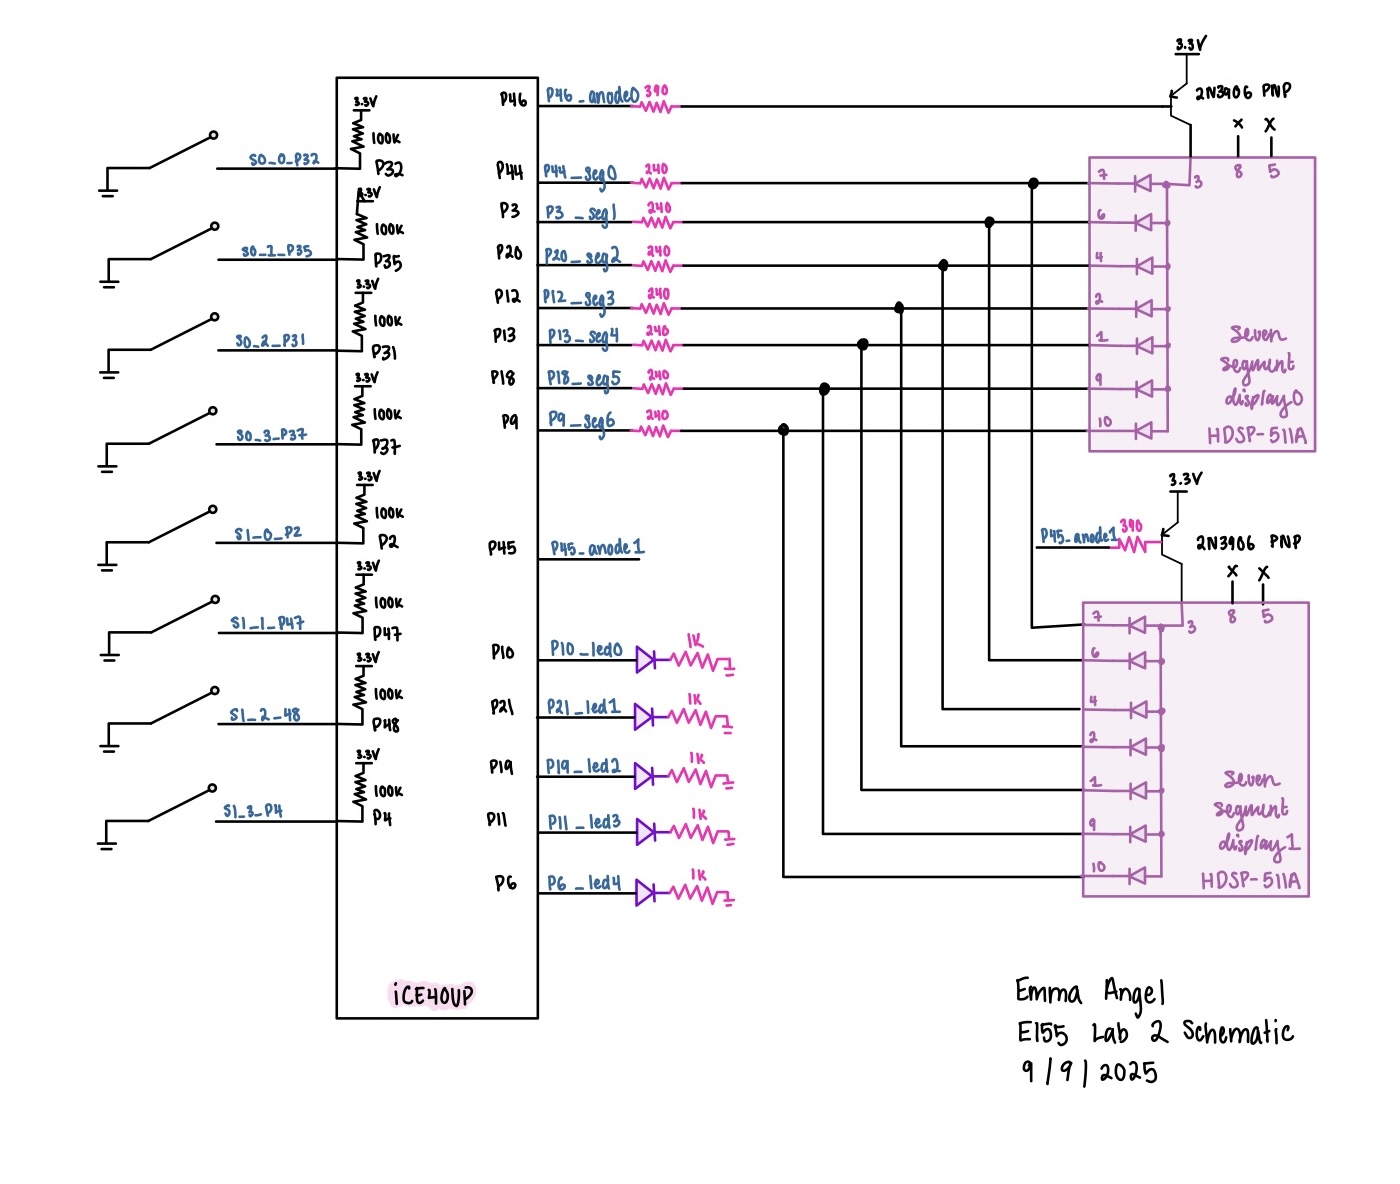 3.3V
2N3906 PNP
x
x
8
5
3.3V
100K
S0_0_P32
P32
3.3V
100K
S0_1_P35
P35
3.3V
100K
S0_2_P31
P31
3.3V
100K
S0_3_P37
P37
3.3V
100K
S1_0_P2
P2
3.3V
100K
S1_1_P47
P47
3.3V
100K
S1_2_48
P48
3.3V
100K
S1_3_P4
P4
iCE40UP
P46
P46_anode0
390
P44
P44_seg0
240
P3
P3_seg1
240
P20
P20_seg2
240
P12
P12_seg3
240
P13
P13_seg4
240
P18
P18_seg5
240
P9
P9_seg6
240
P45
P45_anode1
P10
P10_led0
1K
P21
P21_led1
1K
P19
P19_led2
1K
P11
P11_led3
1K
P6
P6_led4
1K
7
3
6
4
2
1
9
10
Seven
segment
display0
HDSP-511A
3.3V
P45_anode1
390
2N3906 PNP
x
x
8
5
7
3
6
4
2
1
9
10
Seven
segment
display1
HDSP-511A
Emma Angel
E155 Lab 2 Schematic
9/9/2025